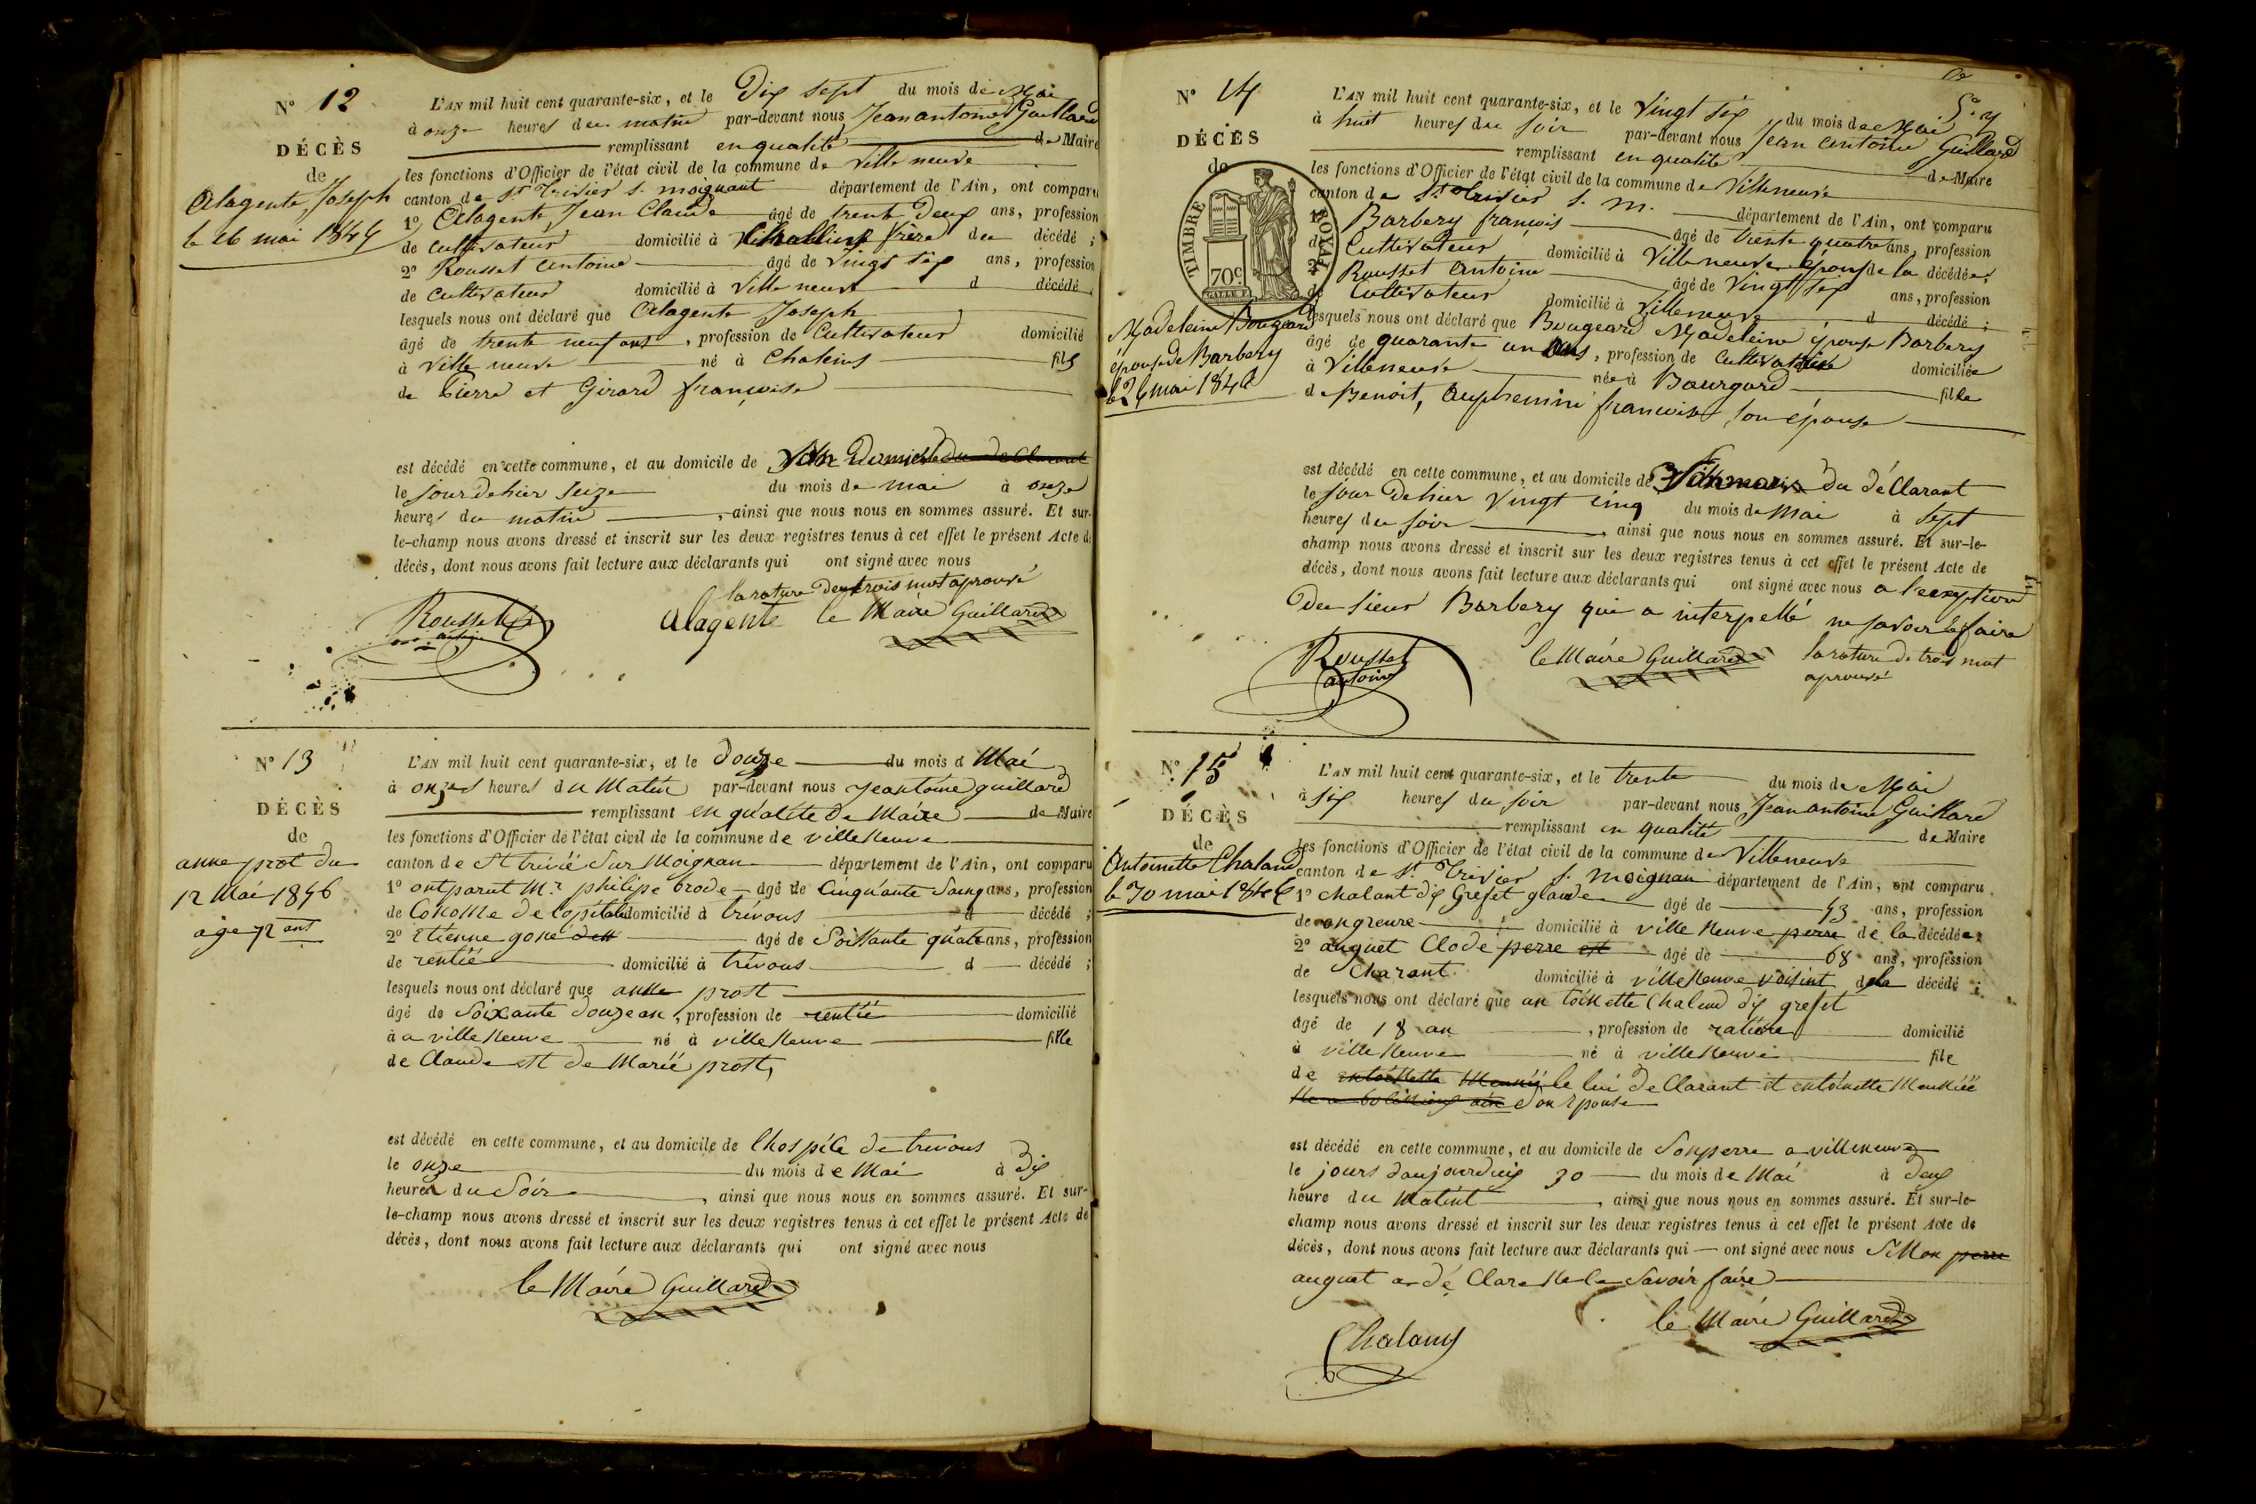 N° 12
DÉCÈS
de
Alagente Joseph
le 16 mai 1846
L'AN mil huit cent quarante-six, et le Dix sept du mois de Mai
à onze heures du matin par-devant nous Jean antoine Guillard
remplissant en qualité de Maire
les fonctions d'Officier de l'état civil de la commune de Ville neuve
canton de St Trivier s. moignant département de l'Ain, ont comparu
1° Alagente Jean Claude âgé de trente Deux ans, profession
de cultivateur domicilié à frère du décédé ;
2° Rousset antoine âgé de vingt six ans, profession
de cultivateur domicilié à Ville neuve d décédé
lesquels nous ont déclaré que Alagente Joseph
âgé de trente neuf ans, profession de Cultivateur domicilié
à Ville neuve né à Chaleins fils
de Pierre et Girard françoise
est décédé en cette commune, et au domicile de Son Domicile
le jour dehier seize du mois de mai à onze
heures du matin, ainsi que nous nous en sommes assuré. Et sur-
le-champ nous avons dressé et inscrit sur les deux registres tenus à cet effet le présent Acte de
décès, dont nous avons fait lecture aux déclarants qui ont signé avec nous
la rature de trois mot aprouvé
Rousset Alagente le Maire Guillard
antoine
N° 13
DÉCÈS
de
anne prot du
12 Mai 1846
age 72 ans
L'AN mil huit cent quarante-six, et le douze du mois d Mai
à onzes heures du Matin par-devant nous jeantoine guillard
remplissant en qualité de Maire de Maire
les fonctions d'Officier de l'état civil de la commune de villeneuve
canton de St trivié sur Moignan département de l'Ain, ont comparu
1° ontparut Mr philipe brode âgé de Cinquante Sainq ans, profession
de Conome de lopitale domicilié à trévous d décédé ;
2° Etienne goné âgé de Soissante quatre ans, profession
de rentié domicilié à trévous d décédé ;
lesquels nous ont déclaré que anne prost
âgé de Soixante douze an, profession de rentié domicilié
à a villeneuve né à villeneuve fille
de Claude est de Marié prost,
est décédé en cette commune, et au domicile de lhospice de trevous
le onze du mois de Mai à dix
heures du Soir, ainsi que nous nous en sommes assuré. Et sur-
le-champ nous avons dressé et inscrit sur les deux registres tenus à cet effet le présent Acte de
décès, dont nous avons fait lecture aux déclarants qui ont signé avec nous
le Maire Guillard
N° 14
DÉCÈS
de
TIMBRE ROYAL
70c
Madeleine Bougeard
épouse de Barbery
le 26 mai 1846
L'AN mil huit cent quarante-six, et le Vingt six du mois de Mai
à huit heures du soir par-devant nous Jean antoine Guillard
remplissant en qualité de Maire
les fonctions d'Officier de l'état civil de la commune de Villeneuve
canton de St Trivier s. m. département de l'Ain, ont comparu
1° Barbery françois âgé de trente quatre ans, profession
de Cultivateur domicilié à Villeneuve époux de la décédée ;
2° Rousset antoine âgé de Vingt six ans, profession
de Cultivateur domicilié à Villeneuve d décédé ;
lesquels nous ont déclaré que Bougeard Madeleine épouse Barbery
âgé de quarante un ans, profession de Cultivatrice domiciliée
à Villeneuve née à Baurgard fille
de Benoit, françoise son épouse
est décédé en cette commune, et au domicile de du déClarant
le jour dehier vingt cinq du mois de Mai à sept
heures du soir, ainsi que nous nous en sommes assuré. Et sur-le-
champ nous avons dressé et inscrit sur les deux registres tenus à cet effet le présent Acte de
décès, dont nous avons fait lecture aux déclarants qui ont signé avec nous a l'exeption
du sieur Barbery qui a interpellé ne savoir le faire
Rousset le Maire Guillard la rature de trois mot
antoine aprouvé
N° 15
DÉCÈS
de
Antoinette Chaland
le 30 mai 1846
L'AN mil huit cent quarante-six, et le trente du mois de Mai
à six heures du soir par-devant nous Jean antoine Guillard
remplissant en qualité de Maire
les fonctions d'Officier de l'état civil de la commune de Villeneuve
canton de St Trivier s. moignan département de l'Ain, ont comparu
1° chalant dix Grefet glaude âgé de 43 ans, profession
de ongreure domicilié à villeneuve perre de la décédée ;
2° auguet Clode perre est âgé de 68 ans, profession
de Charant domicilié à villeneuve voisint dela décédé ;
lesquels nous ont déclaré que an toinette Chaland dix grefet
âgé de 18 an, profession de domicilié
à villeneuve né à villeneuve file
de le lui deClarant et entoinette Meuniéé
son Epouse
est décédé en cette commune, et au domicile de Sonperre a villeneuve
le jours daujourduix 30 du mois de Mai à deux
heure du Matint, ainsi que nous nous en sommes assuré. Et sur-le-
champ nous avons dressé et inscrit sur les deux registres tenus à cet effet le présent Acte de
décès, dont nous avons fait lecture aux déclarants qui ont signé avec nous SiNon perre
auguet a déClare Ne le Savoir faire
Chaland le Maire Guillard